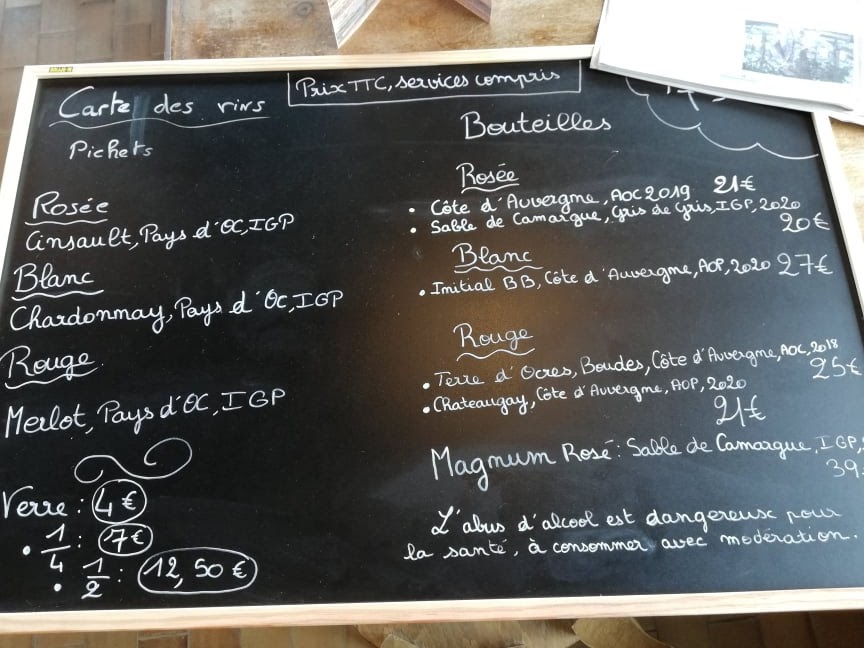 Carte des vins
Prix TTC, services compris
Pichets
Rosée
Cinsault, Pays d'OC, IGP
Blanc
Chardonnay, Pays d'OC, IGP
Rouge
Merlot, Pays d'OC, IGP
Verre : 4€
• 1/4 : 7€
• 1/2 : 12,50€
Bouteilles
Rosée
• Côte d'Auvergne, AOC 2019 21€
• Sable de Camargue, Gris de Gris, IGP, 2020
20€
Blanc
• Initial BB, Côte d'Auvergne, AOP, 2020 27€
Rouge
• Terre d'Ocres, Boudes, Côte d'Auvergne, AOC, 2018
25€
• Chateaugay, Côte d'Auvergne, AOP, 2020
21€
Magnum Rosé : Sable de Camargue, IGP,
39
L'abus d'alcool est dangereux pour
la santé, à consommer avec modération.